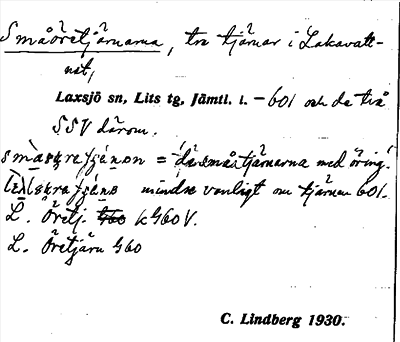 Småöretjärnarna, tre tjärnar i Lakavatt-
net,
Laxsjö sn, Lits tg, Jämtl. l. – 601 och de två
SSV därom.
= de små tjärnarna med öring.
mindre vanligt om tjärnen 601.
L. Öretj. k 460 V.
L. Öretjärn 460
C. Lindberg 1930.